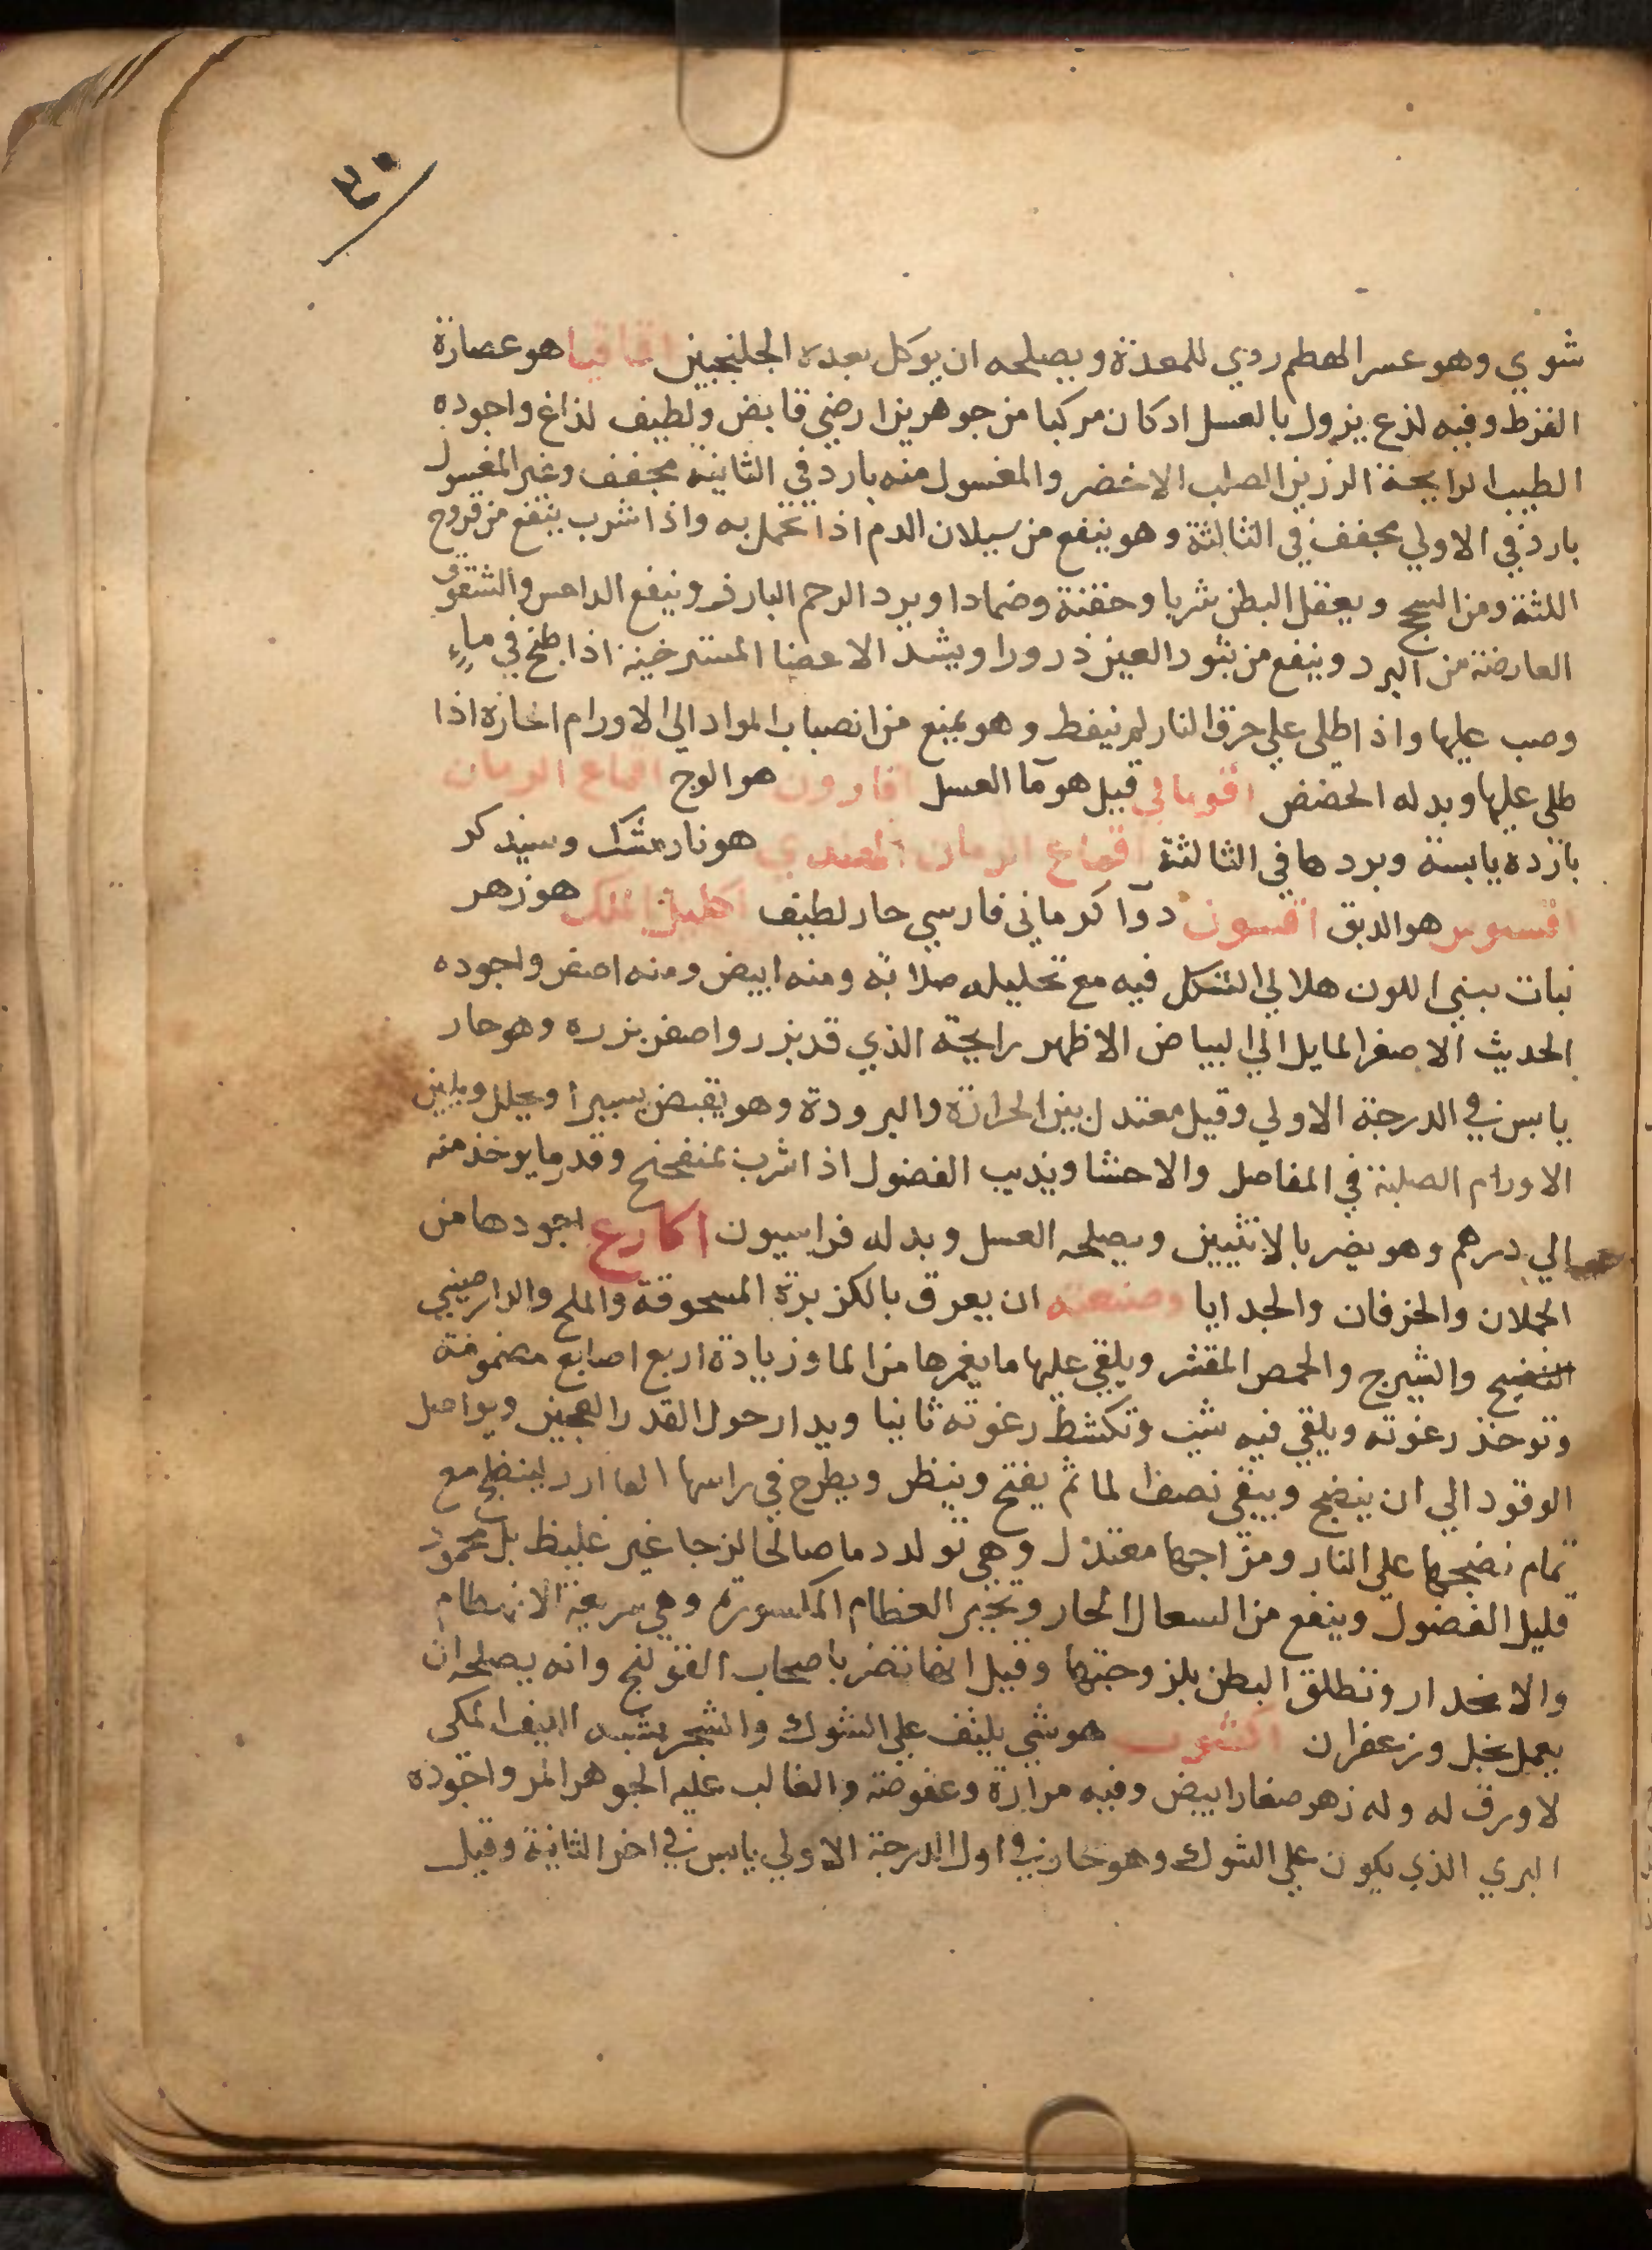 ٤٠
شوي وهو عسر الهضم ردي للمعدة ويصلحه ان يوكل بعده الجلنجبين اقاقيا هو عصارة
القرظ وفيه لذع يزول بالغسل اد كان مركبا من جوهرين ارضي قابض ولطيف لذاع واجوده
الطيب الرايحة الرزين الصلب الاخضر والمغسول منه بارد في الثانية مجفف وغير المغسول
بارد في الاولي مجفف في الثالثة وهو ينفع من سيلان الدم اذا تحمل به واذا شرب ينفع من قروح
اللثة ومن السحج ويعقل البطن شربا وحقنة وضمادا ويرد الرحم البارز وينفع الداحس والشقوق
العارضة من البرد وينفع من بثور العين ذرورا ويشد الاعضا المسترخية اذا طبخ في ماء
وصب عليها واذا طلي علي حرق النار لم ينفط وهو يمنع من انصباب المواد الي الاورام الحارة اذا
طلي عليها وبدله الحضض اقومالي قيل هو مآ العسل اقارون هو الوج اقماع الرمان
بارده يابسة وبردها في الثالثة اقماع الرمان الهندي هو نارمشك وسيذكر
اقسوس هو الدبق اقسون دوآ كرماني فارسي حار لطيف اكليل الملك هو زهر
نبات تبني اللون هلالي الشكل فيه مع تحليله صلابة ومنه ابيض ومنه اصفر واجوده
الحديث الاصفر المايل الي البياض الاظهر رايحة الذي قد بزر واصفر بزره وهو حار
يابس في الدرجة الاولي وقيل معتدل بين الحرارة والبرودة وهو يقبض يسيرا ويحلل ويلين
الاورام الصلبة في المفاصل والاحشا ويذيب الفضول اذا شرب بمنفحنج وقدر ما يوخذ منه
الي درهم وهو يضر بالانثيين ويصلحه العسل وبدله فراسيون اكارع اجودها من
الحملان والخرفان والجدايا وصنعته ان يعرق بالكزبرة المسحوقة والملح والدارصيني
والشيرج والحمص المقشر ويلقي عليها ما يغمرها من الما وزيادة اربع اصابع مضمومة
وتوخذ رغوته ويلقي فيه شبت وتكشط رغوته ثانيا ويدار حول القدر العجين ويواصل
الوقود الي ان ينضج ويبقي نصف الما ثم يفتح وينظر ويطرح في راسها لينطبخ مع
تمام نضجها علي النار ومزاجها معتدل وهي تولد دما صالحا لزجا غير غليظ بل محمود
قليل الفضول وينفع من السعال الحار وتجبر العظام المكسورة وهي سريعة الانهضام
والانحدار وتطلق البطن بلزوجتها وقيل انها تضر باصحاب القولنج وانه يصلحه ان
يعمل بخل وزعفران اكشوث هو شي يلتف علي الشوك والشجر يشبه الليف المكي
لا ورق له وله زهر صغار ابيض وفيه مرارة وعفوصة والغالب عليه الجوهر المر واجوده
البري الذي يكون علي الشوك وهو حار في اول الدرجة الاولي يابس في اخر الثانية وقيل